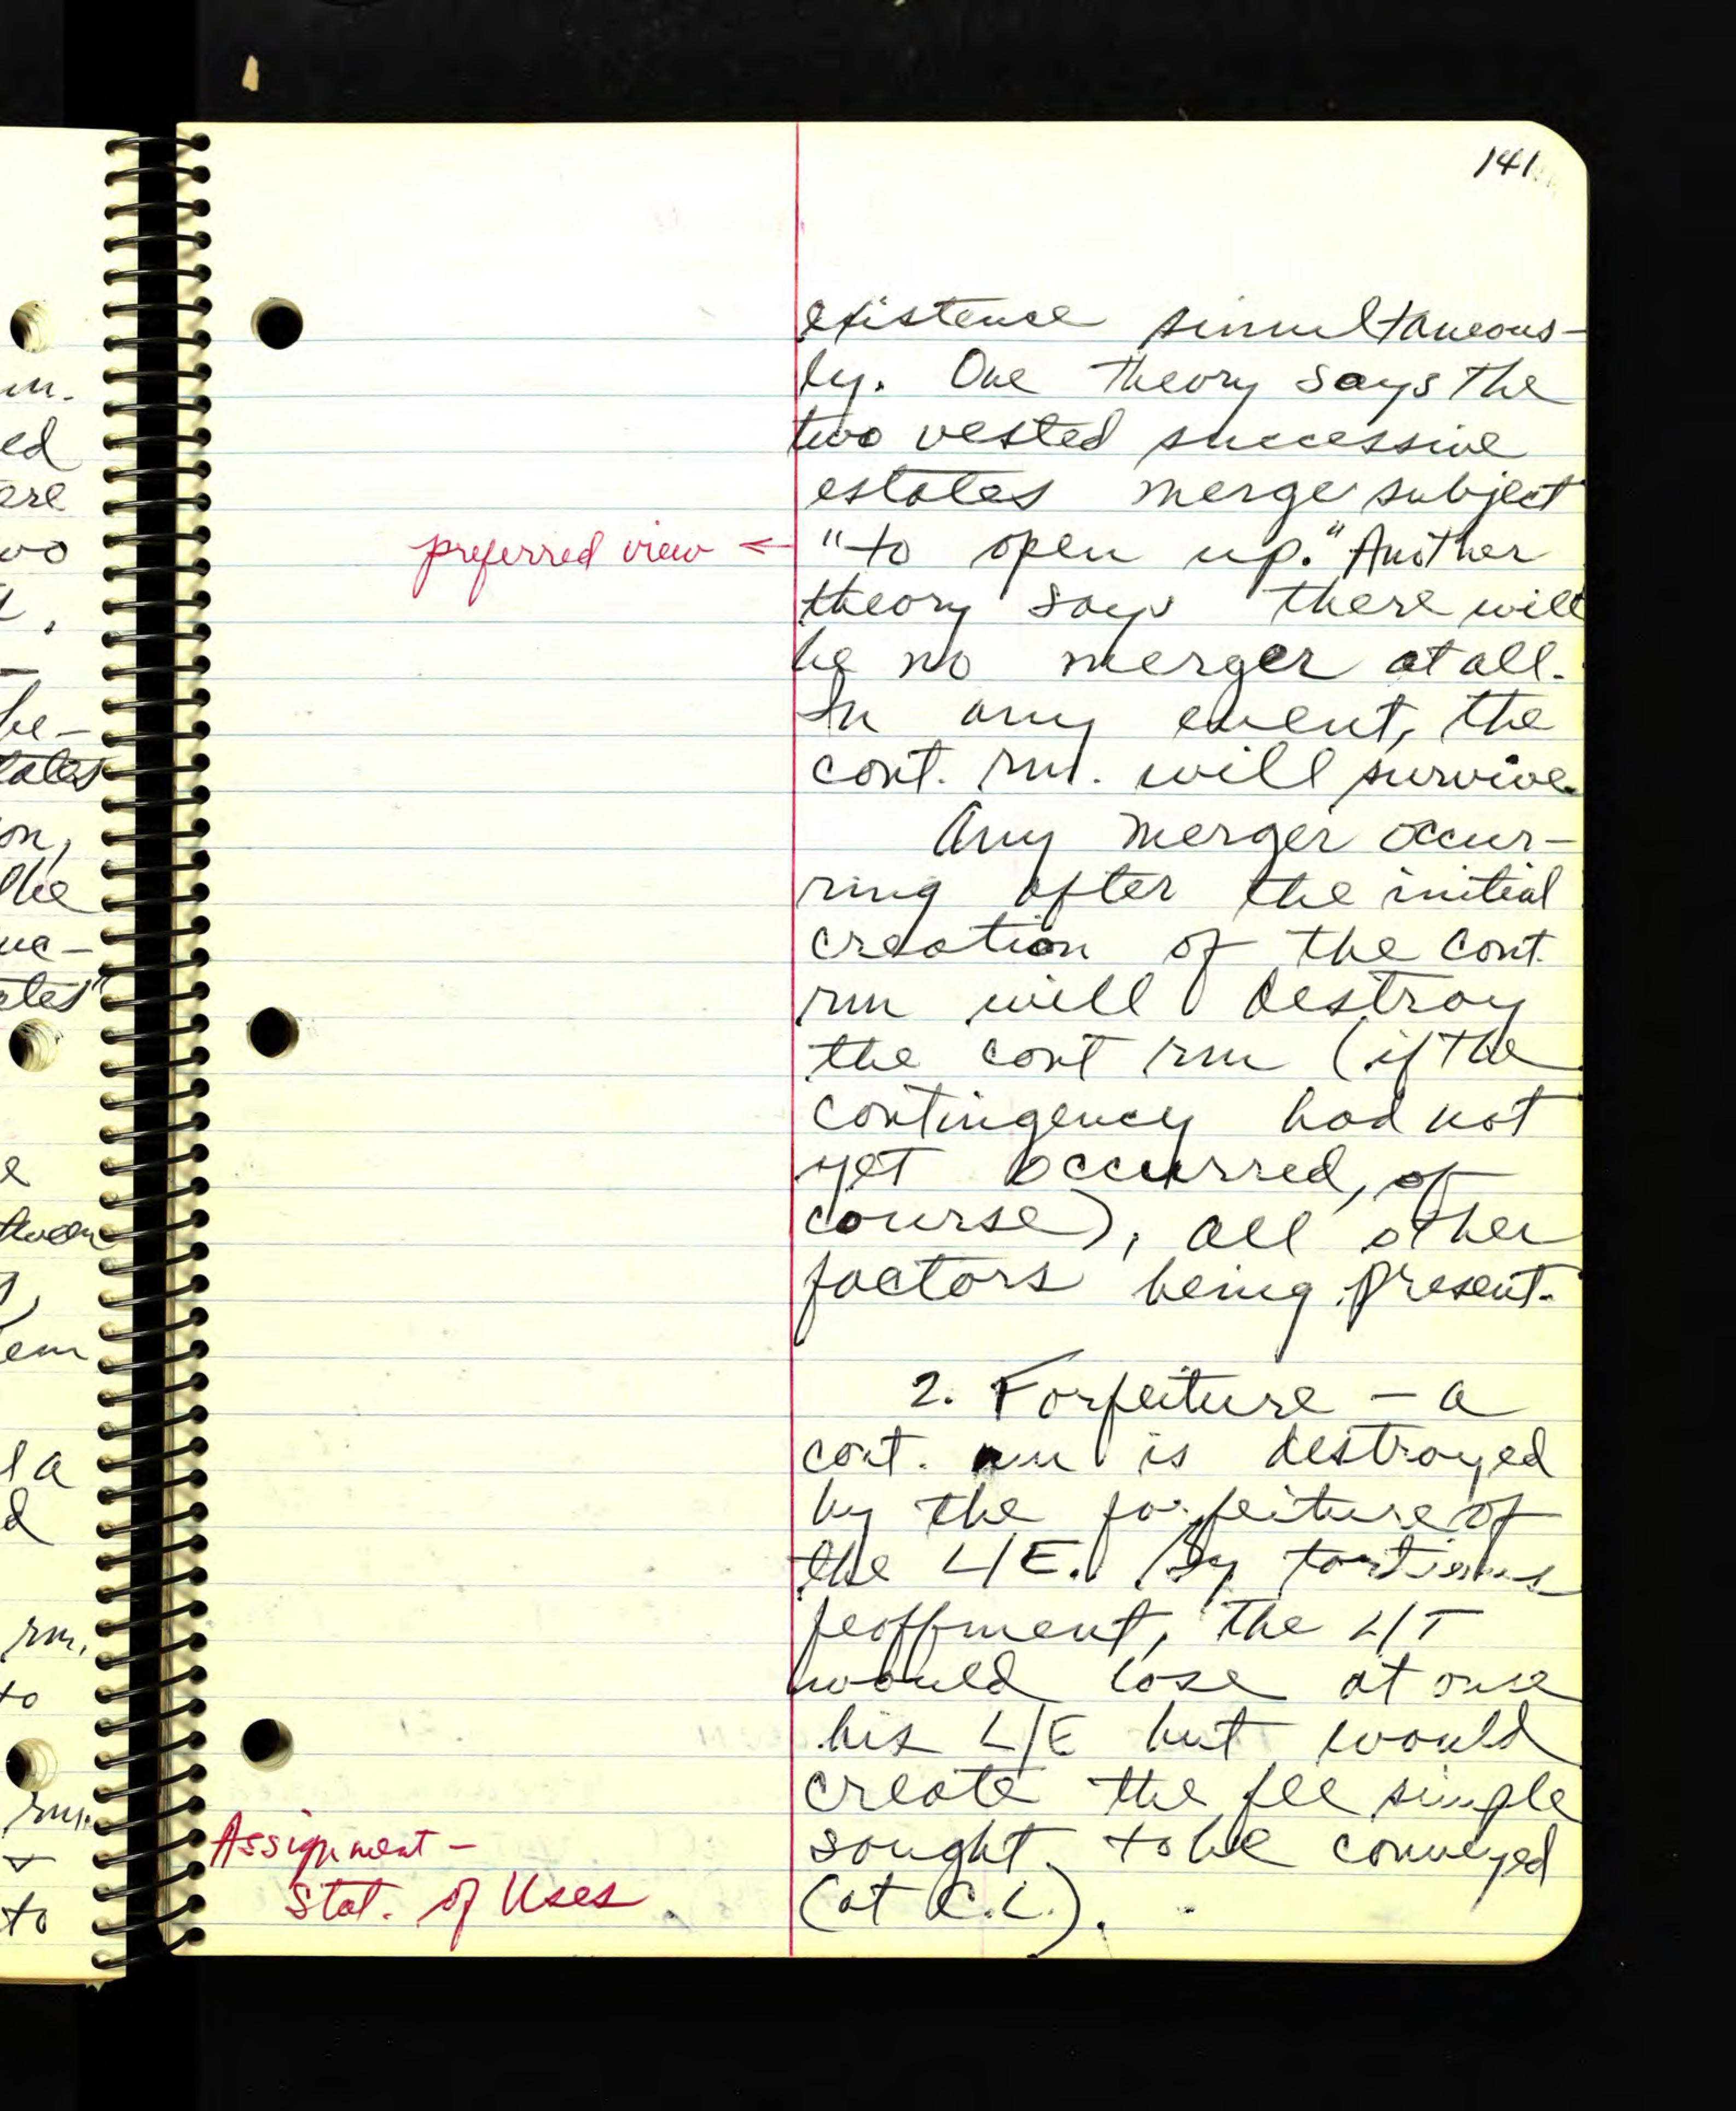 141
existence simultaneous-
ly. One theory says the
two vested successive
estates merge subject
preferred view ← "to open up." Another
theory says there will
be no merger at all.
In any event, the
cont. rm. will survive.
Any merger occur-
ring after the initial
creation of the cont.
rm will destroy
the cont rm (if the
contingency had not
yet occurred, of
course), all other
factors being present.
2. Forfeiture - a
cont. rm is destroyed
by the forfeiture of
the L/E. By tortious
feoffment, the L/T
would lose at once
his L/E but would
create the fee simple
sought to be conveyed
(at C.L.).
Assignment -
Stat. of Uses
in.
ed
ere
wo
be-
tates
on,
the
ates"
e
tween
em
l a
d
rm.
to
rm.
to